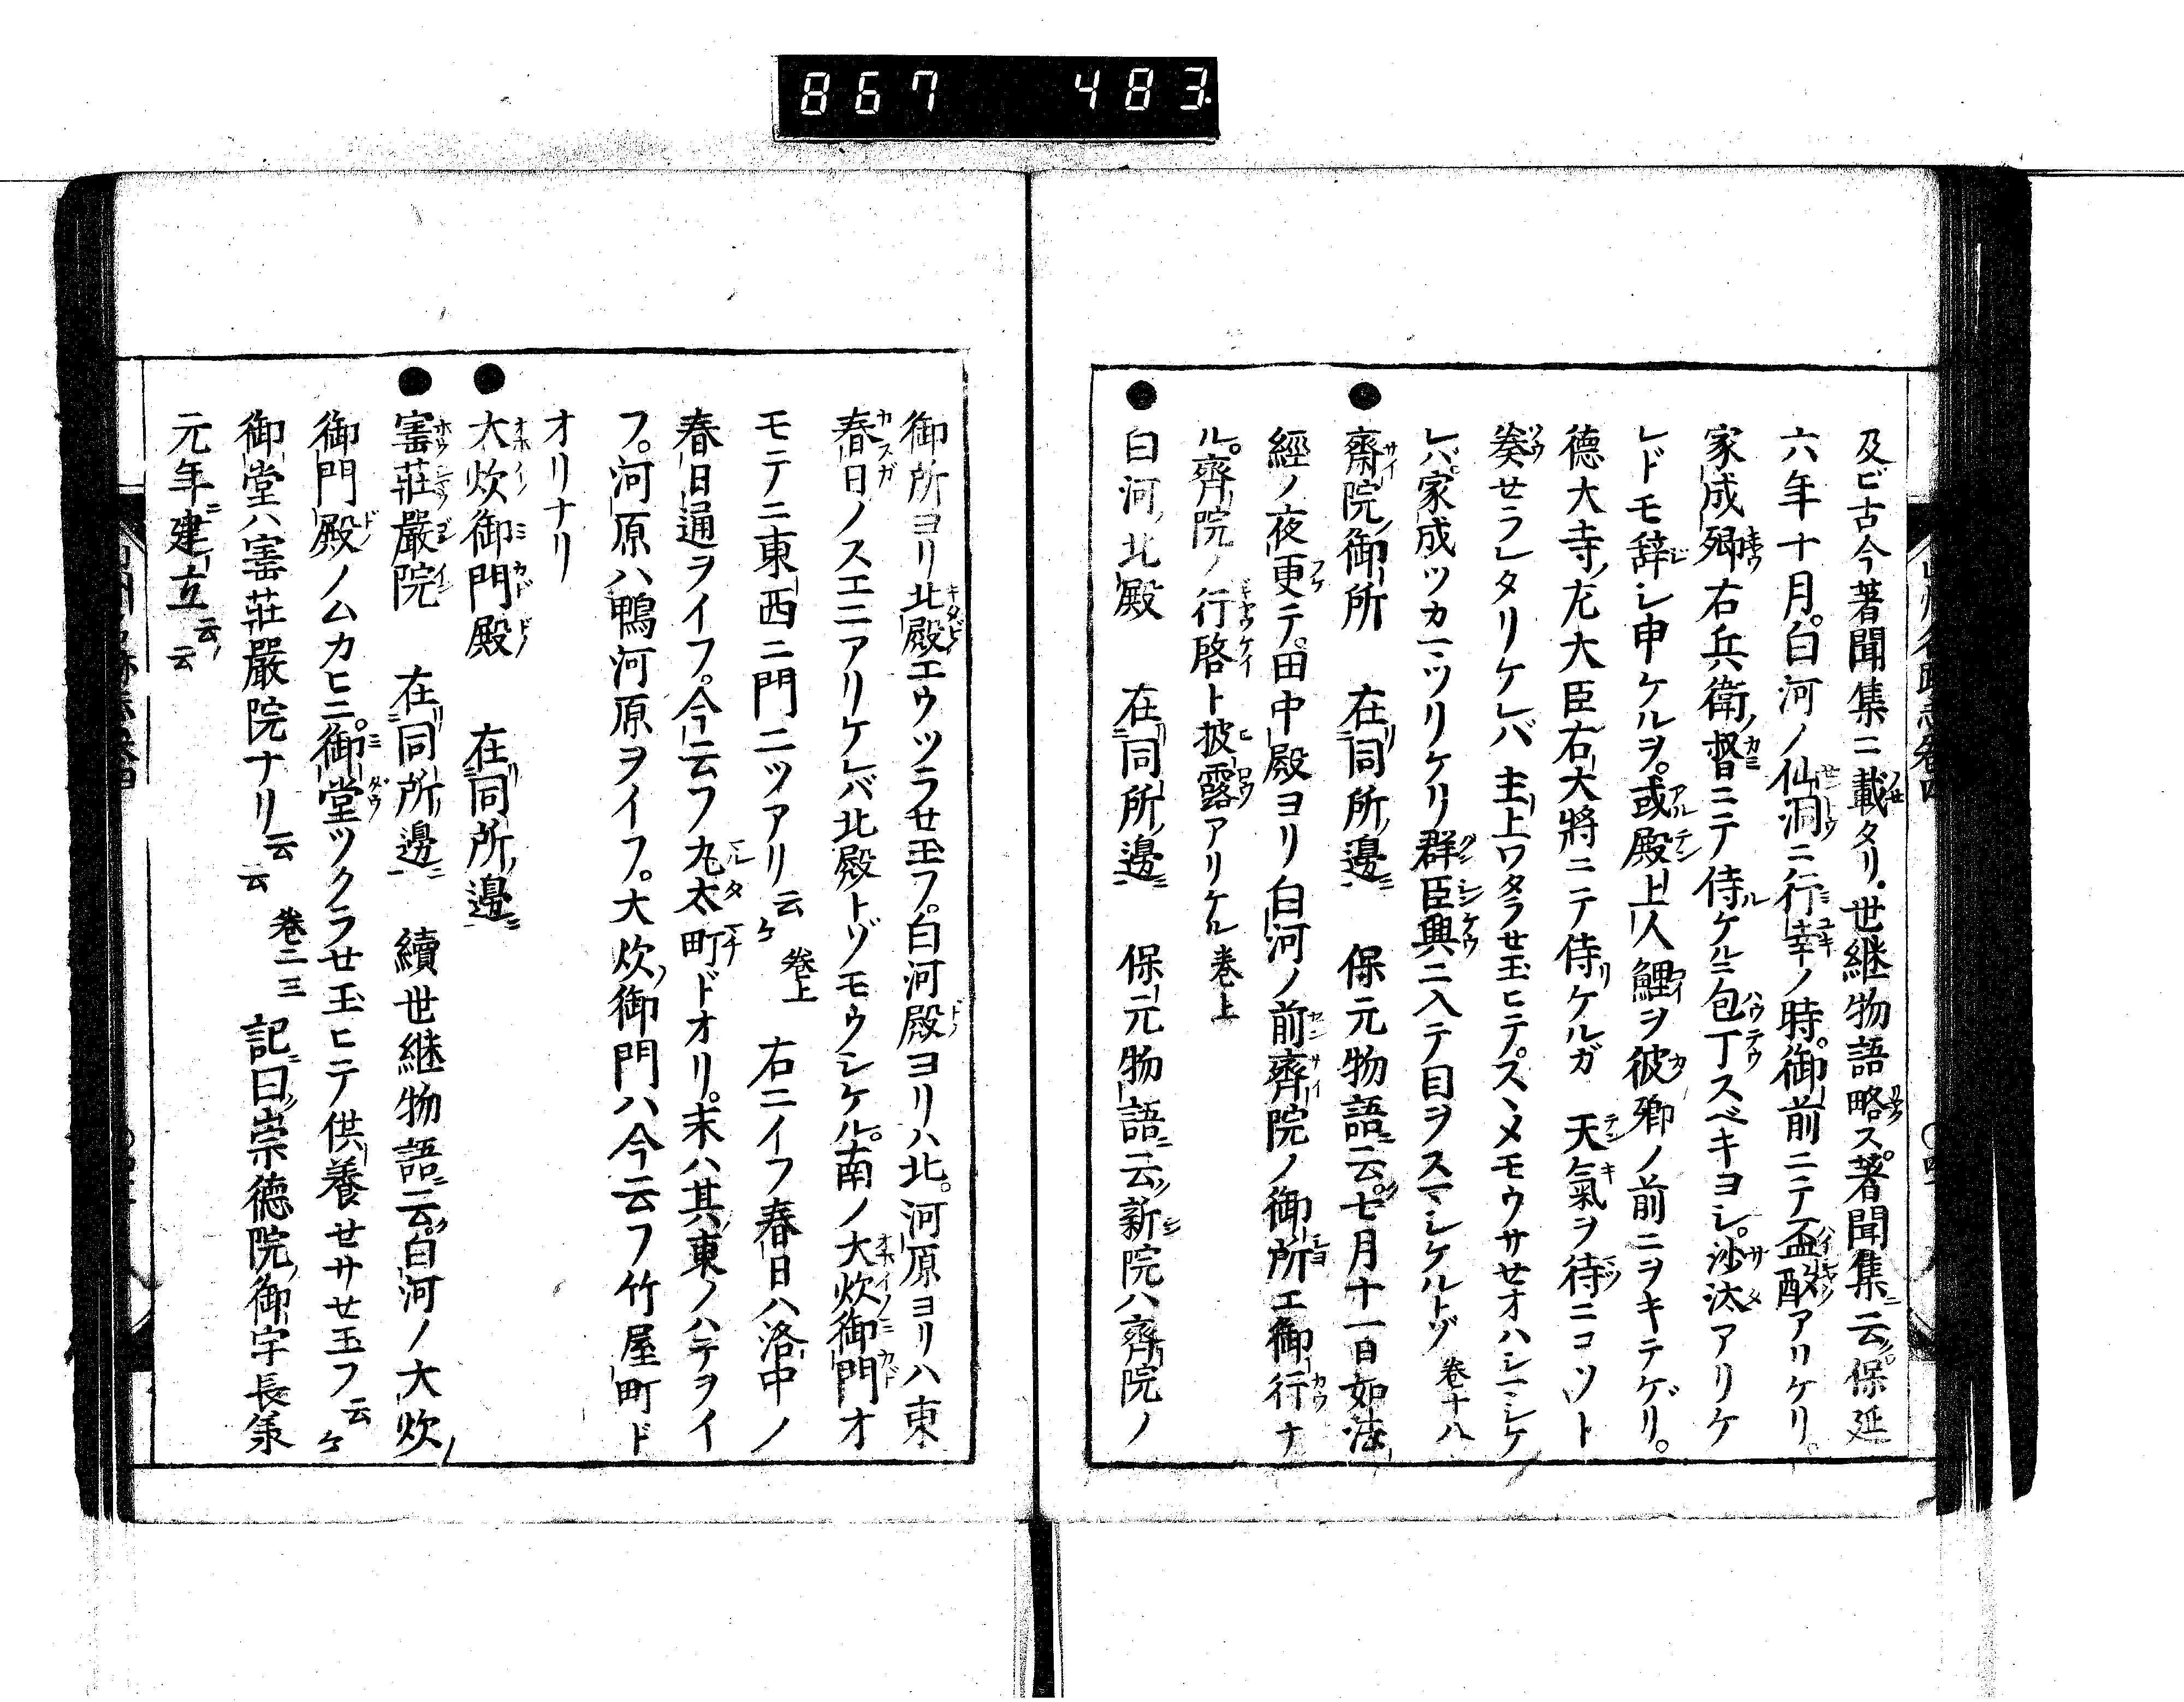 867 483.
及ビ古今著聞集ニ載タリ世継物語略ス。著聞集ニ云保延
六年十月。白河ノ仙洞ニ行幸ノ時。御前ニテ盃酌アリケリ。
家成卿右兵衛督ニテ侍ケルニ包丁スベキヨシ。沙汰アリケ
レドモ辞シ申ケルヲ。或殿上人鯉ヲ彼卿ノ前ニヲキテゲリ。
德大寺左大臣右大將ニテ侍リケルガ 天氣ヲ待ニコソト
奏せラレタリケレバ 主上ワタラせ玉ヒテ。スヽメモウサせオハシマシケ
レバ家成ツカマツリケリ群臣興ニ入テ目ヲスマシケルトゾ 卷十八
● 齋院御所 在同所邊 保元物語ニ云。七月十一日如法
經ノ夜更テ。田中殿ヨリ白河ノ前齊院ノ御所エ御行ナ
ル。齊院ノ行啓ト披露アリケル 卷上
● 白河北殿 在同所邊 保元物語ニ云新院ハ齊院ノ
御所ヨリ北殿エウツラせ玉フ。白河殿ヨリハ北。河原ヨリハ東
春日ノスエニアリケレバ北殿トゾモウシケル。南ノ大炊御門オ
モテニ東西ニ門二ツアリ云ケ 卷上 右ニイフ春日ハ洛中ノ
春日通ヲイフ。今云フ丸太町ドオリ。末ハ其東ノハテヲイ
フ。河原ハ鴨河原ヲイフ。大炊御門ハ今云フ竹屋町ド
オリナリ
● 大炊御門殿 在同所邊
● 寳莊嚴院 在同所邊 續世継物語ニ云。白河ノ大炊
御門殿ノムカヒニ。御堂ツクラせ玉ヒテ供養せサせ玉フ云ケ
御堂ハ寳莊嚴院ナリ云云 卷二三 記曰崇德院御宇長羕
元年建立云云